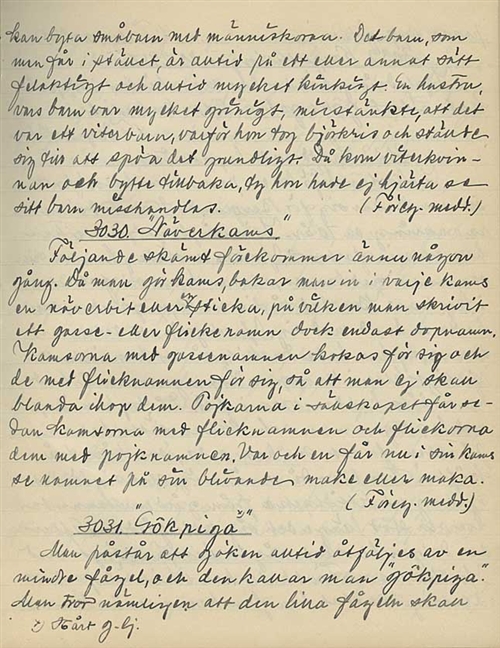 kan byta småbarn med människorna. Det barn, som
man får i stället, är alltid på ett eller annat sätt
felaktigt och alltid mycket kinkigt. En hustru,
vars barn var mycket grinigt, misstänkte, att det
var ett viterbarn, varför hon tog björkris och ställde
sig till att spöa det grundligt. Då kom viterkvin-
nan och bytte tillbaka, ty hon hade ej hjärta se
sitt barn misshandlas. (Föreg. medd.)
3030. "Näverkams"
Följande skämt förekommer ännu någon
gång. Då man gör kams, bakar man in i varje kams
en näverbit eller en sticka, på vilken man skrivit
ett gosse- eller flickenamn dock endast dopnamn.
Kamsorna med gossenamnen kokas för sig och
de med flicknamnen för sig, så att man ej skall
blanda ihop dem. Pojkarna i sällskapet får se-
dan kamsorna med flicknamnen och flickorna
dem med pojknamnen. Var och en får nu i sin kams
se namnet på sin blivande make eller maka.
(Föreg. medd.)
3031. "Gökpiga" x)
Man påstår att göken alltid åtföljes av en
mindre fågel, och den kallar man "gökpiga".
Man tror nämligen att den lilla fågeln skall
x) Hårt g-lj.